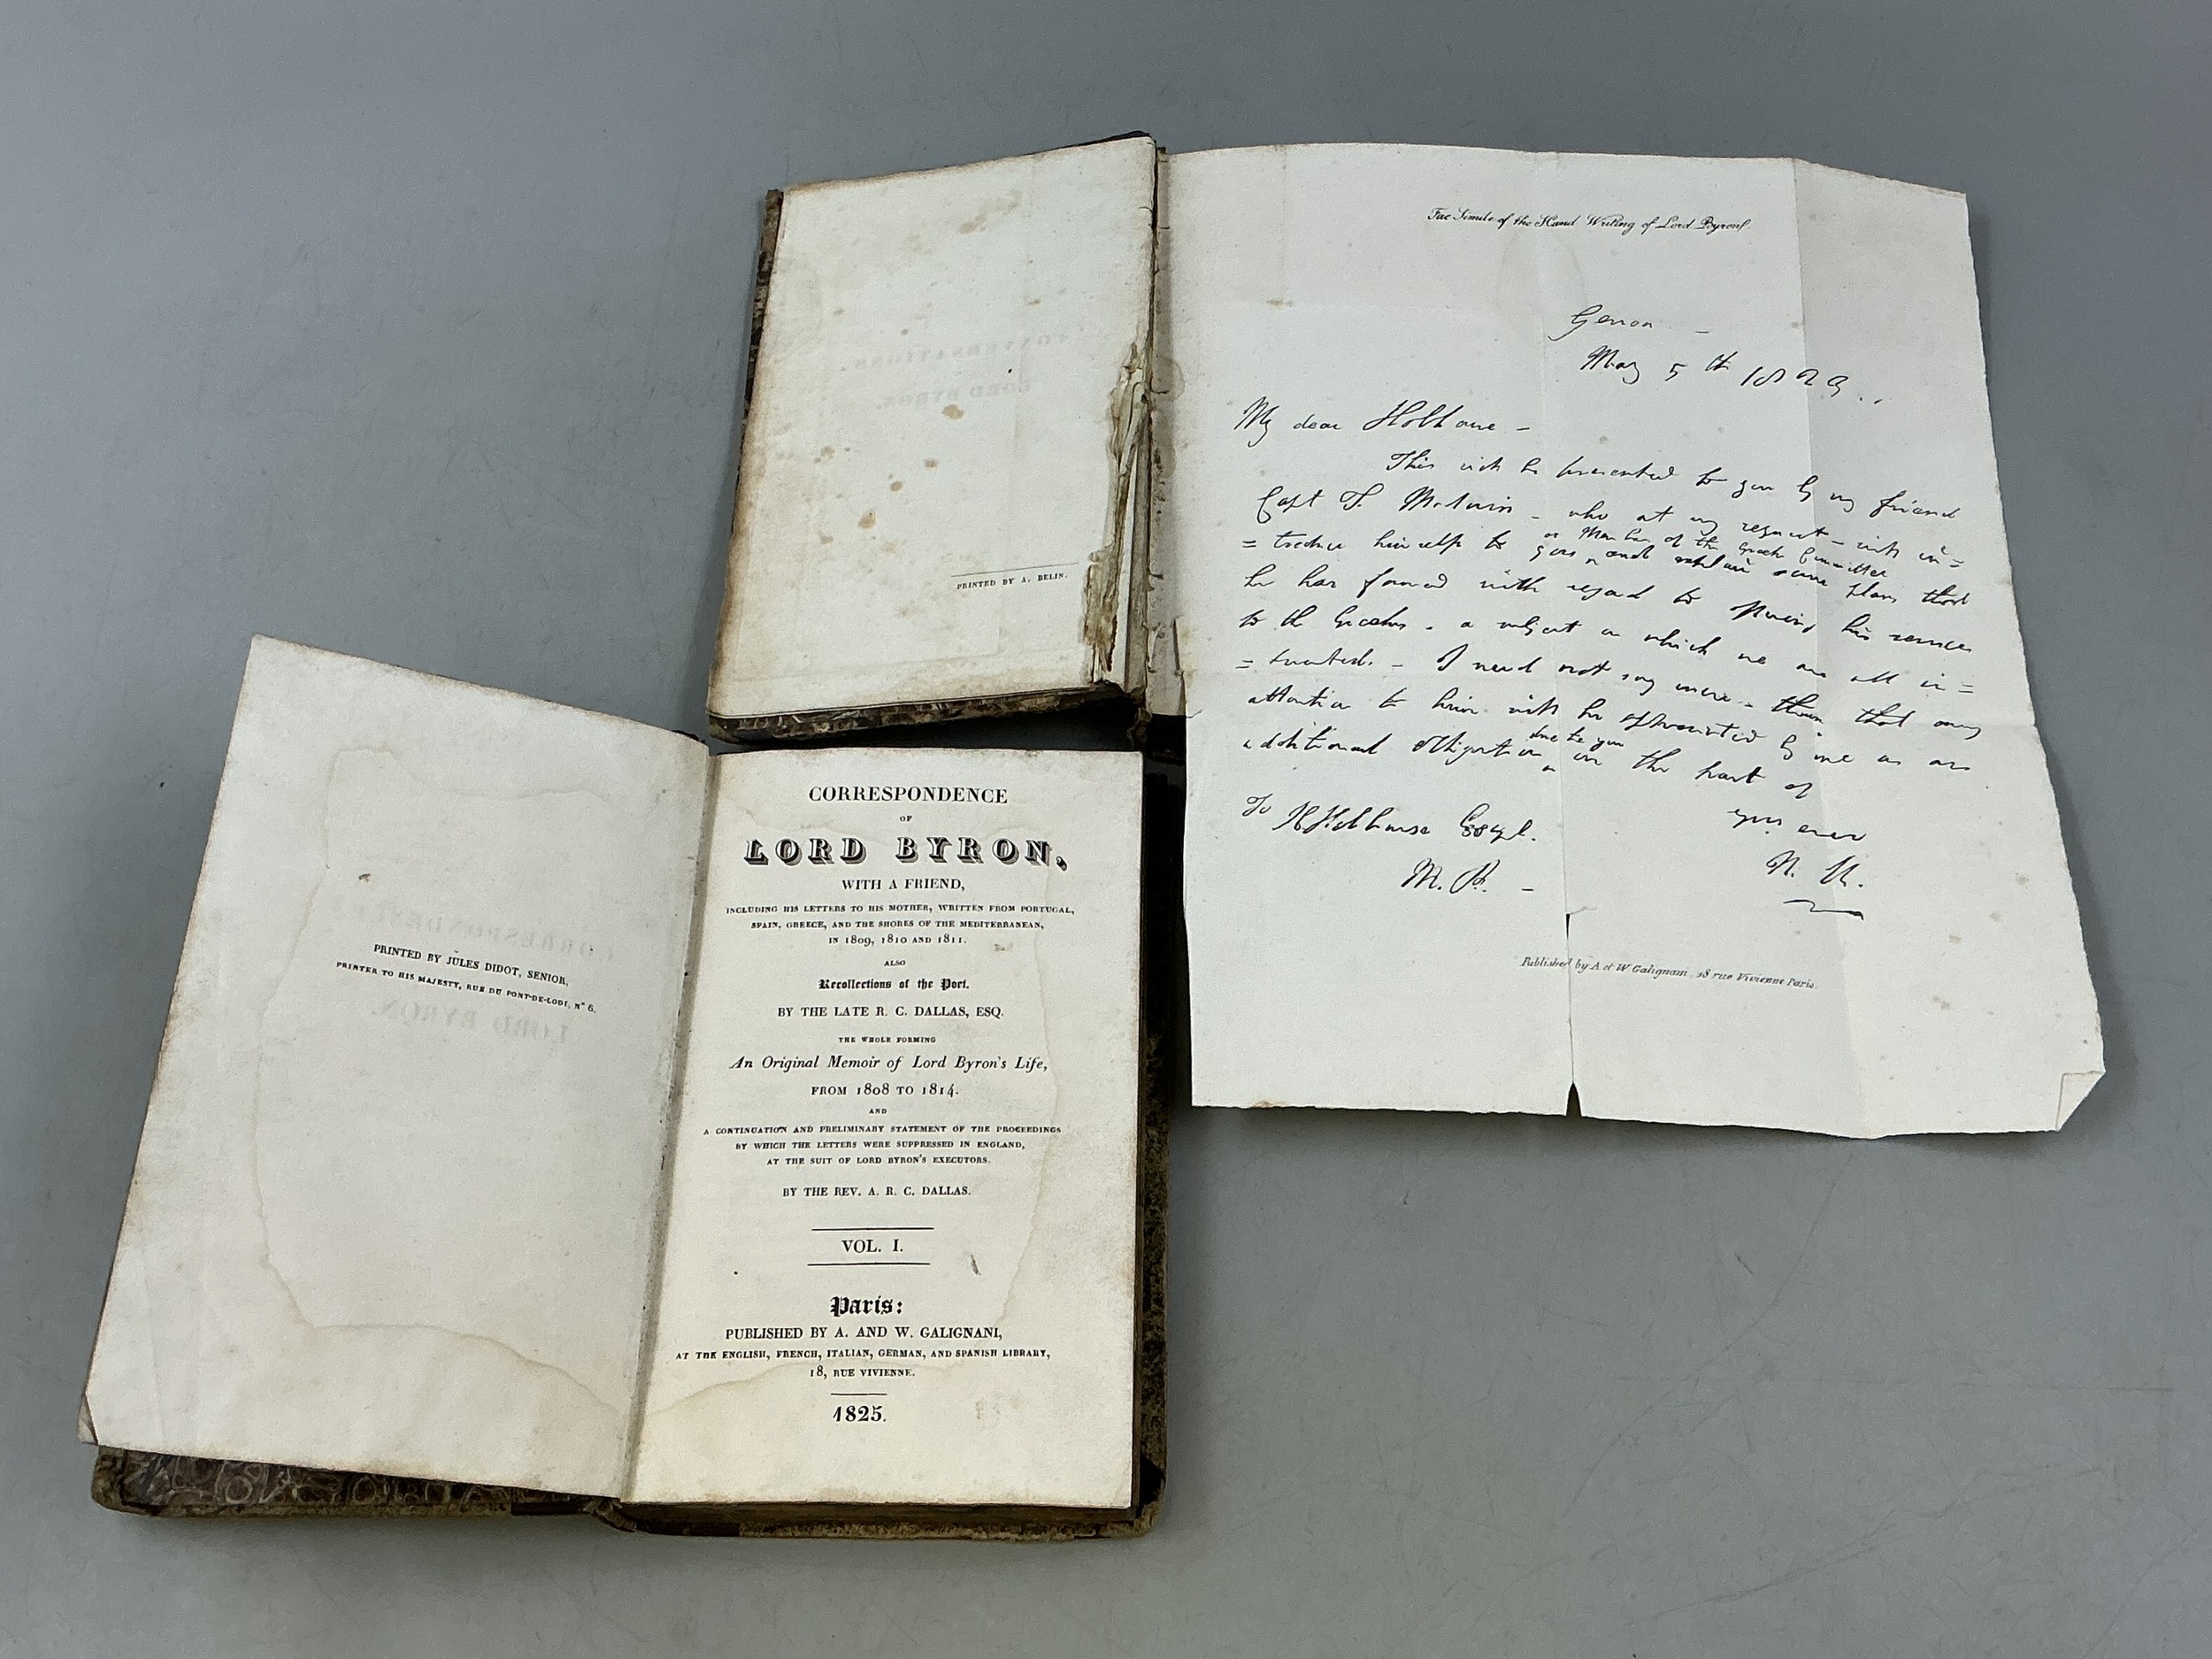 PRINTED BY A. BELIN.
Fac Simile of the Hand Writing of Lord Byron
Genoa. –
May 5th 1823..
My dear Hobhouse –
This will be presented to you by my friend
Capt T. Medwin – who at my request – will in=
=troduce himself to you and explain some plans that
as Member of the Greek Committee
he has formed with regard to his services
to the Greeks. a subject on which we are all in=
=terested. – I need not say more – than that any
attention to him will be appreciated by me as an
additional obligation in the part of
due to you
yrs ever
N. B.
To
Hobhouse Esqre.
M. P. –
Published by A et W Galignani, 18 rue Vivienne Paris.
PRINTED BY JULES DIDOT, SENIOR,
PRINTER TO HIS MAJESTY, RUE DU PONT-DE-LODI, N° 6.
CORRESPONDENCE
OF
LORD BYRON,
WITH A FRIEND,
INCLUDING HIS LETTERS TO HIS MOTHER, WRITTEN FROM PORTUGAL,
SPAIN, GREECE, AND THE SHORES OF THE MEDITERRANEAN,
IN 1809, 1810 AND 1811.
ALSO
Recollections of the Poet.
BY THE LATE R. C. DALLAS, ESQ.
THE WHOLE FORMING
An Original Memoir of Lord Byron's Life,
FROM 1808 TO 1814.
AND
A CONTINUATION AND PRELIMINARY STATEMENT OF THE PROCEEDINGS
BY WHICH THE LETTERS WERE SUPPRESSED IN ENGLAND,
AT THE SUIT OF LORD BYRON'S EXECUTORS.
BY THE REV. A. R. C. DALLAS.
VOL. I.
Paris:
PUBLISHED BY A. AND W. GALIGNANI,
AT THE ENGLISH, FRENCH, ITALIAN, GERMAN, AND SPANISH LIBRARY,
18, RUE VIVIENNE.
1825.